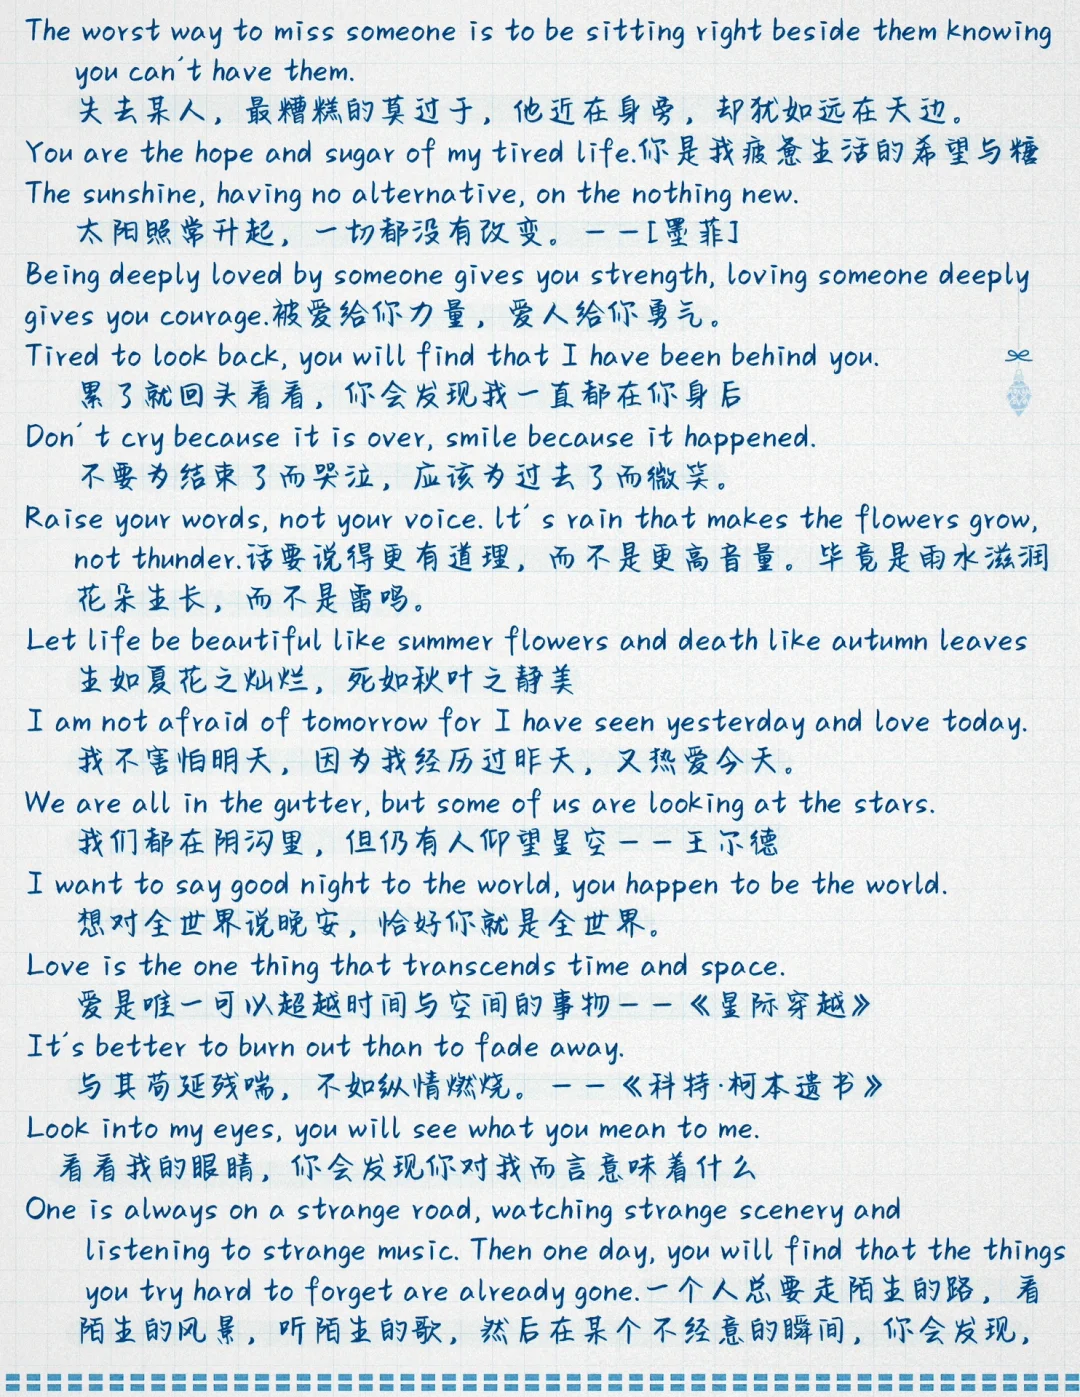 The worst way to miss someone is to be sitting right beside them knowing
you can't have them.
失去某人，最糟糕的莫过于，他近在身旁，却犹如远在天边。
You are the hope and sugar of my tired life.你是我疲惫生活的希望与糖
The sunshine, having no alternative, on the nothing new.
太阳照常升起，一切都没有改变。——[墨菲]
Being deeply loved by someone gives you strength, loving someone deeply
gives you courage.被爱给你力量，爱人给你勇气。
Tired to look back, you will find that I have been behind you.
累了就回头看看，你会发现我一直都在你身后
Don't cry because it is over, smile because it happened.
不要为结束了而哭泣，应该为过去了而微笑。
Raise your words, not your voice. It's rain that makes the flowers grow,
not thunder.话要说得更有道理，而不是更高音量。毕竟是雨水滋润
花朵生长，而不是雷鸣。
Let life be beautiful like summer flowers and death like autumn leaves
生如夏花之灿烂，死如秋叶之静美
I am not afraid of tomorrow for I have seen yesterday and love today.
我不害怕明天，因为我经历过昨天，又热爱今天。
We are all in the gutter, but some of us are looking at the stars.
我们都在阴沟里，但仍有人仰望星空——王尔德
I want to say good night to the world, you happen to be the world.
想对全世界说晚安，恰好你就是全世界。
Love is the one thing that transcends time and space.
爱是唯一可以超越时间与空间的事物——《星际穿越》
It's better to burn out than to fade away.
与其苟延残喘，不如纵情燃烧。——《科特·柯本遗书》
Look into my eyes, you will see what you mean to me.
看看我的眼睛，你会发现你对我而言意味着什么
One is always on a strange road, watching strange scenery and
listening to strange music. Then one day, you will find that the things
you try hard to forget are already gone.一个人总要走陌生的路，看
陌生的风景，听陌生的歌，然后在某个不经意的瞬间，你会发现，